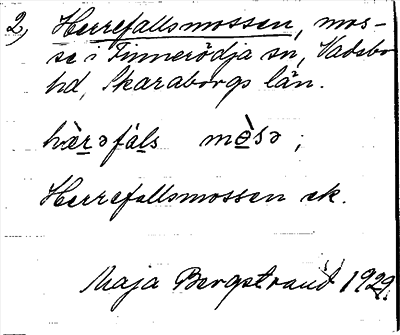 2) Herrefallsmossen, mos-
se i Finnerödja sn, Vadsbo
hd, Skaraborgs län.
hæ̀rəfáls mòsə ;
Herrefallsmossen ek.
Maja Bergstrand 1929.